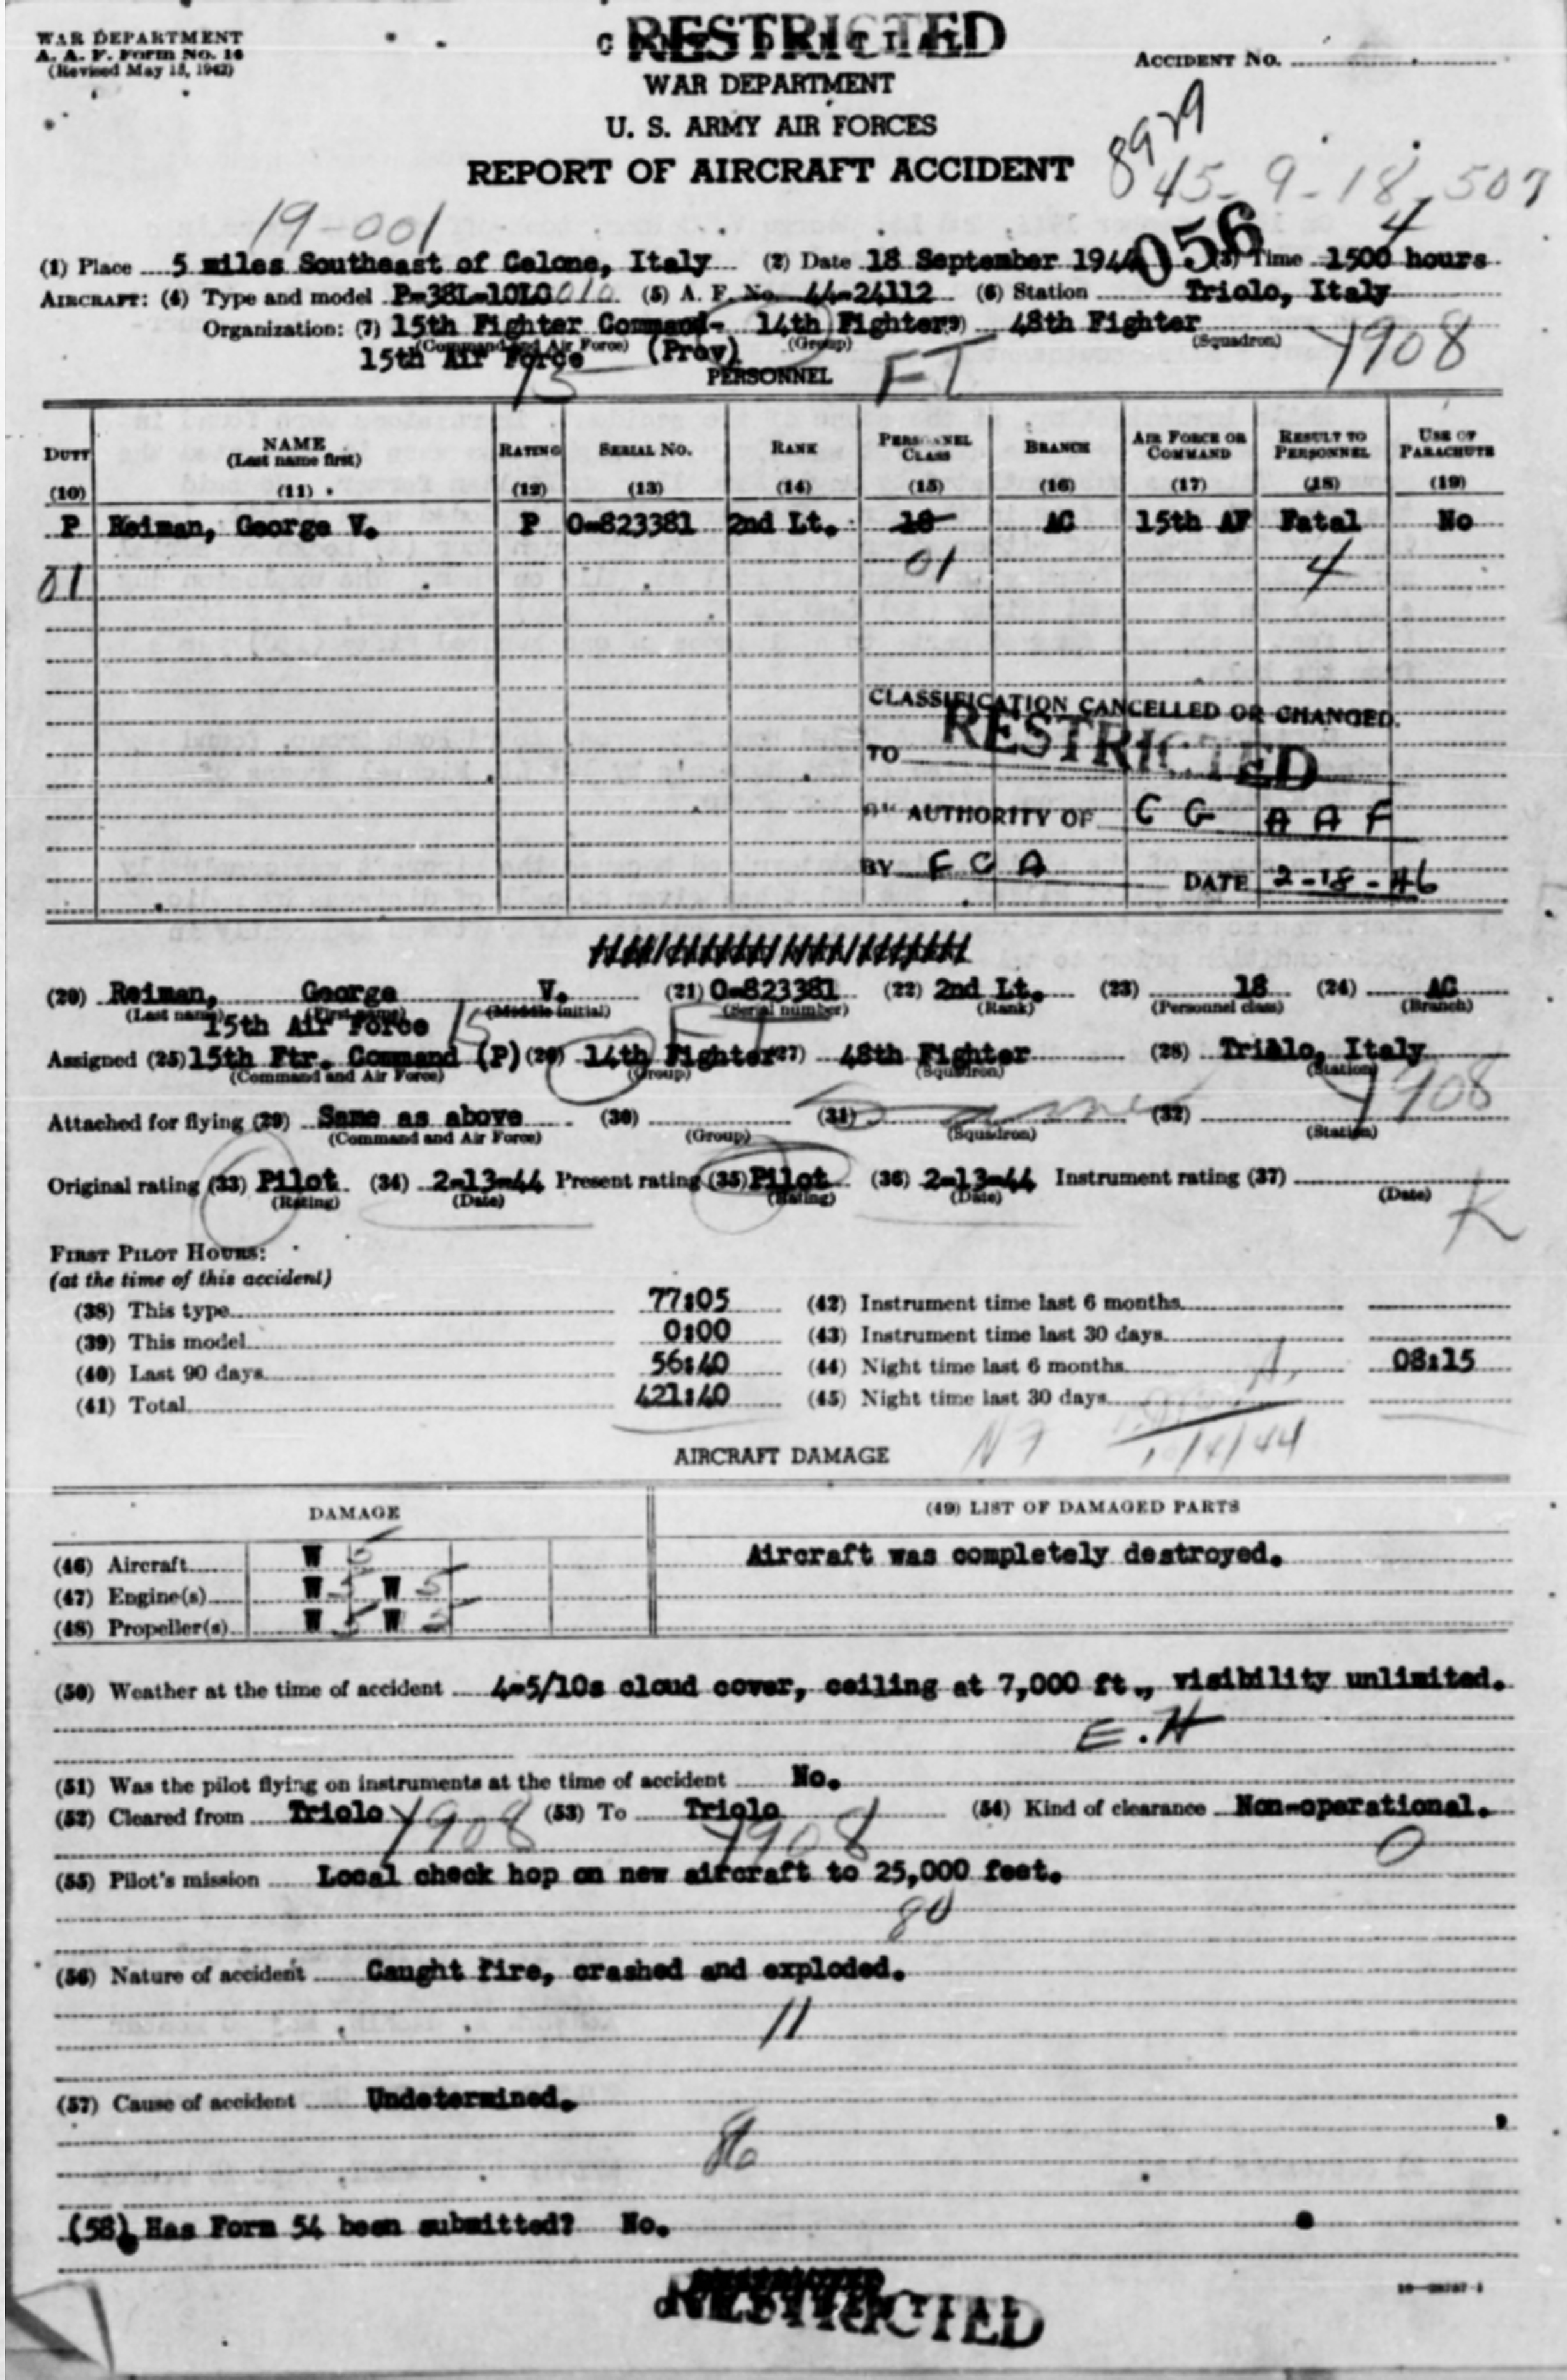 WAR DEPARTMENT
A. A. F. FORM NO. 14
(Revised May 15, 1942)
RESTRICTED
ACCIDENT NO.
WAR DEPARTMENT
U. S. ARMY AIR FORCES
REPORT OF AIRCRAFT ACCIDENT
8929
45-9-18-507
19-001
056
4
(1) Place 5 miles Southeast of Celone, Italy (2) Date 18 September 1944 (3) Time 1500 hours
AIRCRAFT: (4) Type and model P-38L-10LO 010 (5) A. F. No. 44-24112 (6) Station Triolo, Italy
Organization: (7) 15th Fighter Command- 14th Fighter 48th Fighter
(Command and Air Force) (Group) (Squadron)
15th Air Force (Prov) 1908
15 FT
PERSONNEL
DUTY NAME (Last name first) RATING SERIAL NO. RANK PERSONNEL CLASS BRANCH AIR FORCE OR COMMAND RESULT TO PERSONNEL USE OF PARACHUTE
(10) (11) (12) (13) (14) (15) (16) (17) (18) (19)
P Reiman, George V. P O-823381 2nd Lt. 18 AC 15th AF Fatal No
01 01 4
CLASSIFICATION CANCELLED OR CHANGED.
TO RESTRICTED
BY AUTHORITY OF C G A A F
BY F C A DATE 2-18-46
(20) Reiman, George V. (21) O-823381 (22) 2nd Lt. (23) 18 (24) AC
(Last name) (First name) (Middle initial) (Serial number) (Rank) (Personnel class) (Branch)
15th Air Force 15
Assigned (25) 15th Ftr. Command (P) (26) 14th Fighter (27) 48th Fighter (28) Triolo, Italy
(Command and Air Force) (Group) (Squadron) (Station)
1908
Attached for flying (29) Same as above (30) (31) same (32)
(Command and Air Force) (Group) (Squadron) (Station)
Original rating (33) Pilot (34) 2-13-44 Present rating (35) Pilot (36) 2-13-44 Instrument rating (37)
(Rating) (Date) (Rating) (Date) (Date)
K
FIRST PILOT HOURS:
(at the time of this accident)
(38) This type 77:05 (42) Instrument time last 6 months
(39) This model 0:00 (43) Instrument time last 30 days
(40) Last 90 days 56:40 (44) Night time last 6 months 08:15
(41) Total 421:40 (45) Night time last 30 days
AIRCRAFT DAMAGE
DAMAGE (49) LIST OF DAMAGED PARTS
(46) Aircraft W 5 Aircraft was completely destroyed.
(47) Engine(s) W 5 W 5
(48) Propeller(s) W 5 W 5
(50) Weather at the time of accident 4-5/10s cloud cover, ceiling at 7,000 ft., visibility unlimited.
E.H
(51) Was the pilot flying on instruments at the time of accident No.
(52) Cleared from Triolo 1908 (53) To Triolo 1908 (54) Kind of clearance Non-operational.
0
(55) Pilot's mission Local check hop on new aircraft to 25,000 feet.
80
(56) Nature of accident Caught fire, crashed and exploded.
11
(57) Cause of accident Undetermined.
(58) Has Form 54 been submitted? No.
RESTRICTED